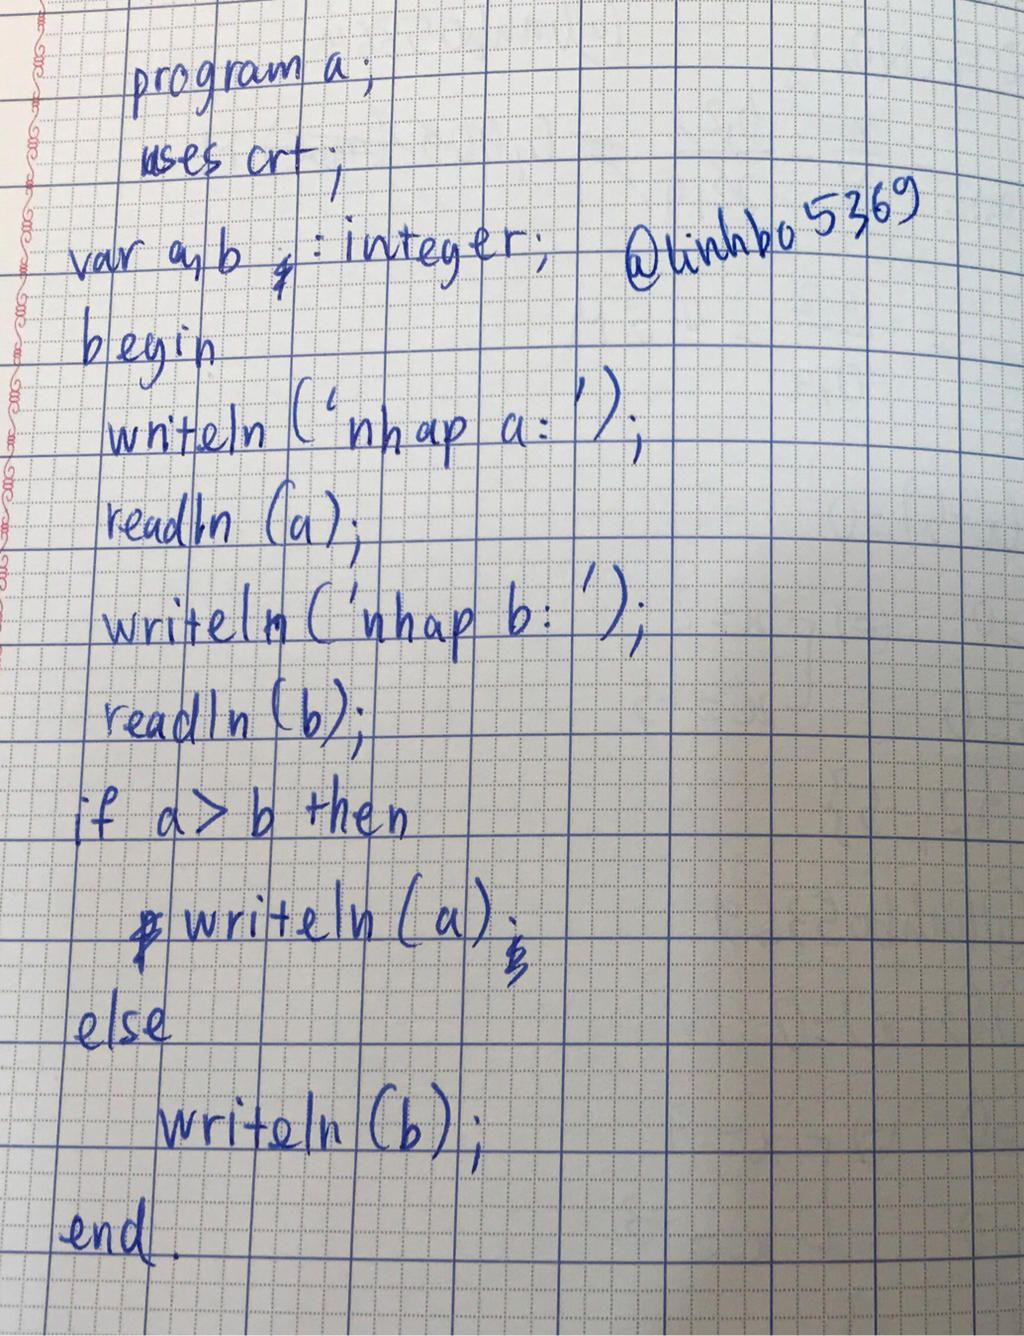 program a;
uses crt;
var a, b : integer;
@linhbo5369
begin
writeln ('nhap a: ');
readln (a);
writeln ('nhap b: ');
readln (b);
if a > b then
writeln (a)
else
writeln (b);
end.